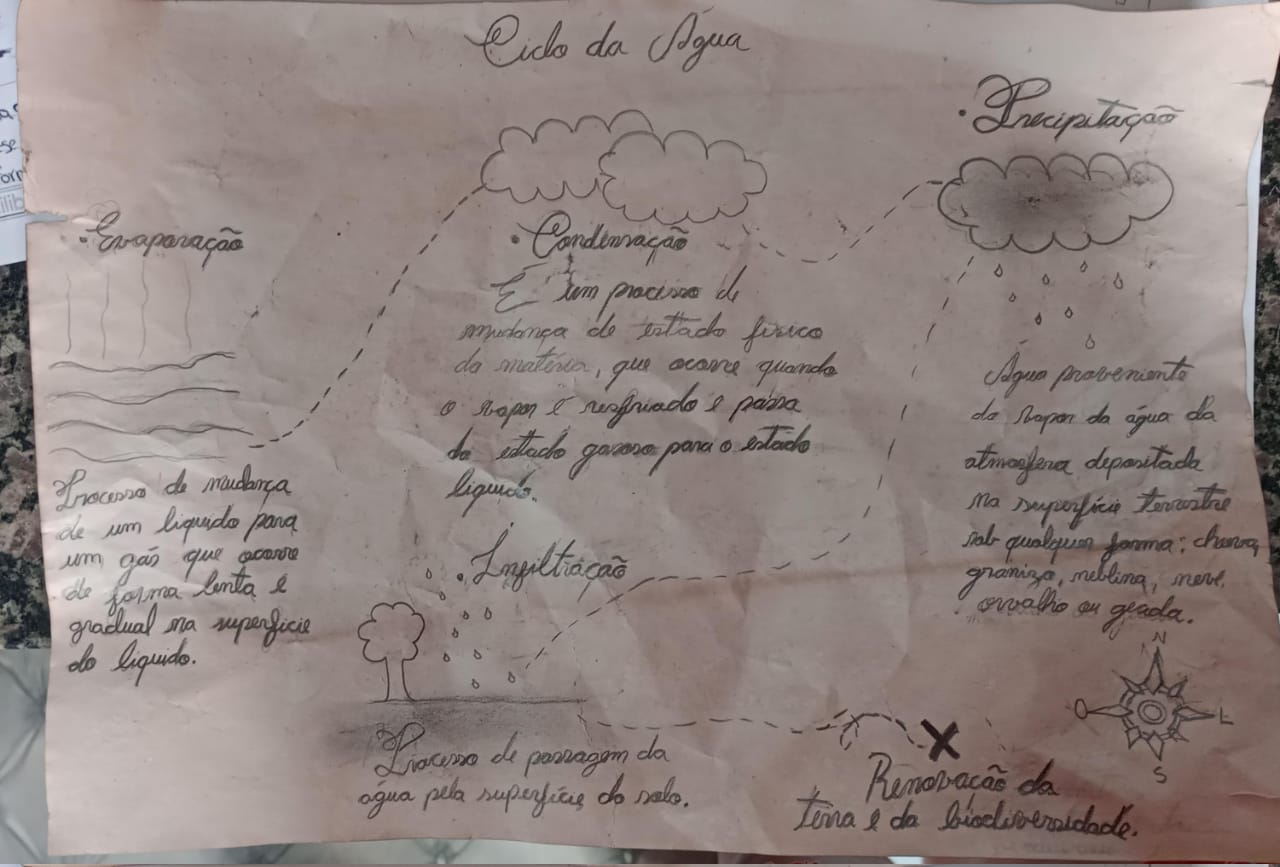 Ciclo da Água
• Precipitação
• Evaporação
• Condensação
É um processo de
mudança de estado físico
da matéria, que ocorre quando
o vapor é resfriado e passa
do estado gasoso para o estado
líquido.
Água proveniente
do vapor da água da
atmosfera depositada
na superfície terrestre
sob qualquer forma: chuva,
granizo, neblina, neve,
orvalho ou geada.
Processo de mudança
de um líquido para
um gás que ocorre
de forma lenta e
gradual na superfície
do líquido.
• Infiltração
Processo de passagem da
água pela superfície do solo.
N
O L
S
Renovação da
terra e da biodiversidade.